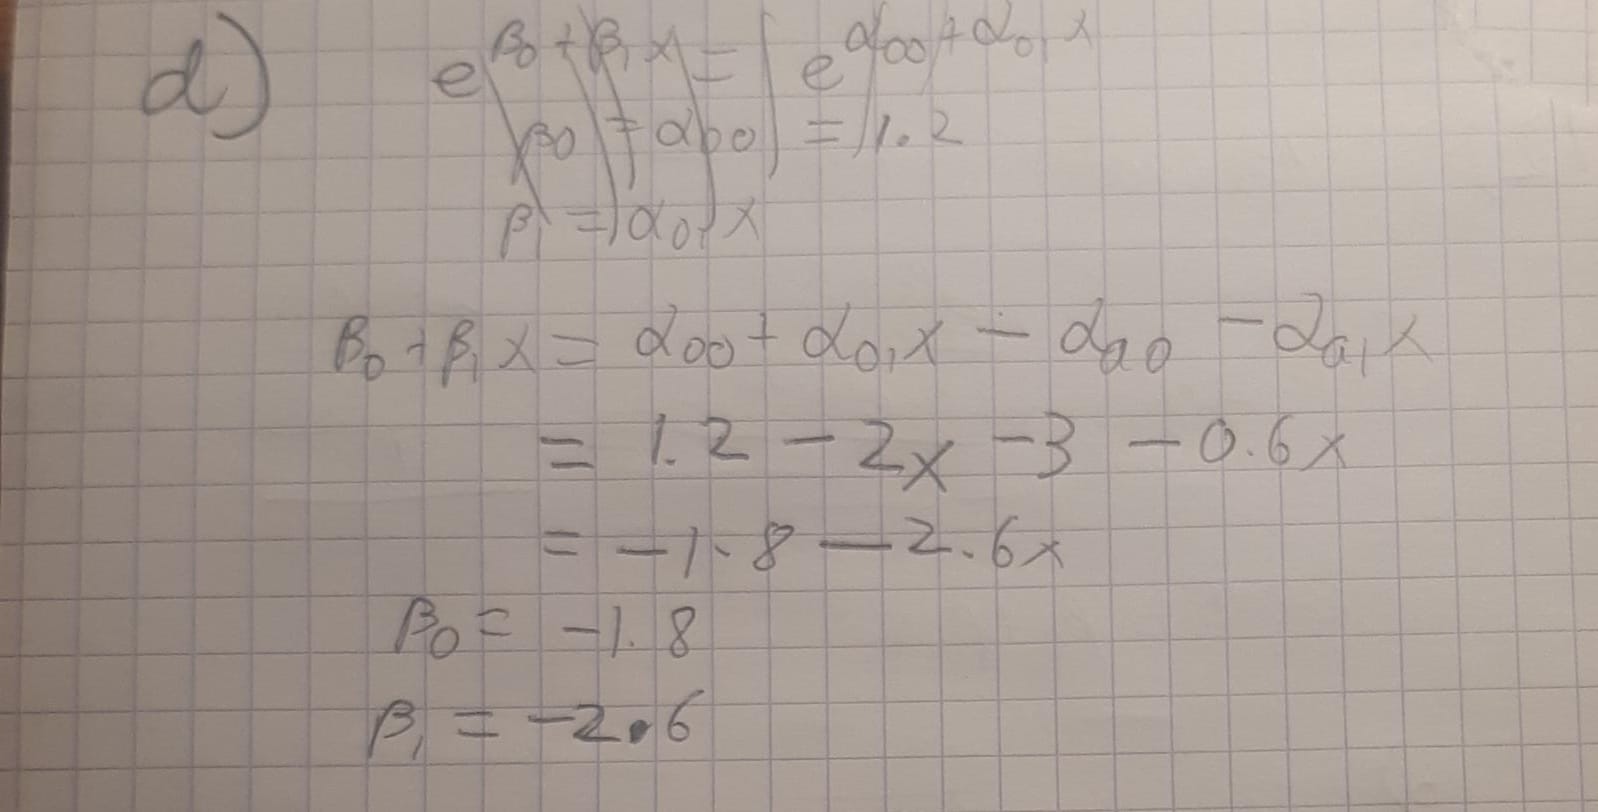 d) e^{β₀ + β₁x} = e^{α₀₀ + α₀₁x}
β₀ = α₀₀ = 1.2
β₁ = α₀₁x
β₀ + β₁x = α₀₀ + α₀₁x - αₐ₀ - αₐ₁x
= 1.2 - 2x - 3 - 0.6x
= -1.8 - 2.6x
β₀ = -1.8
β₁ = -2.6